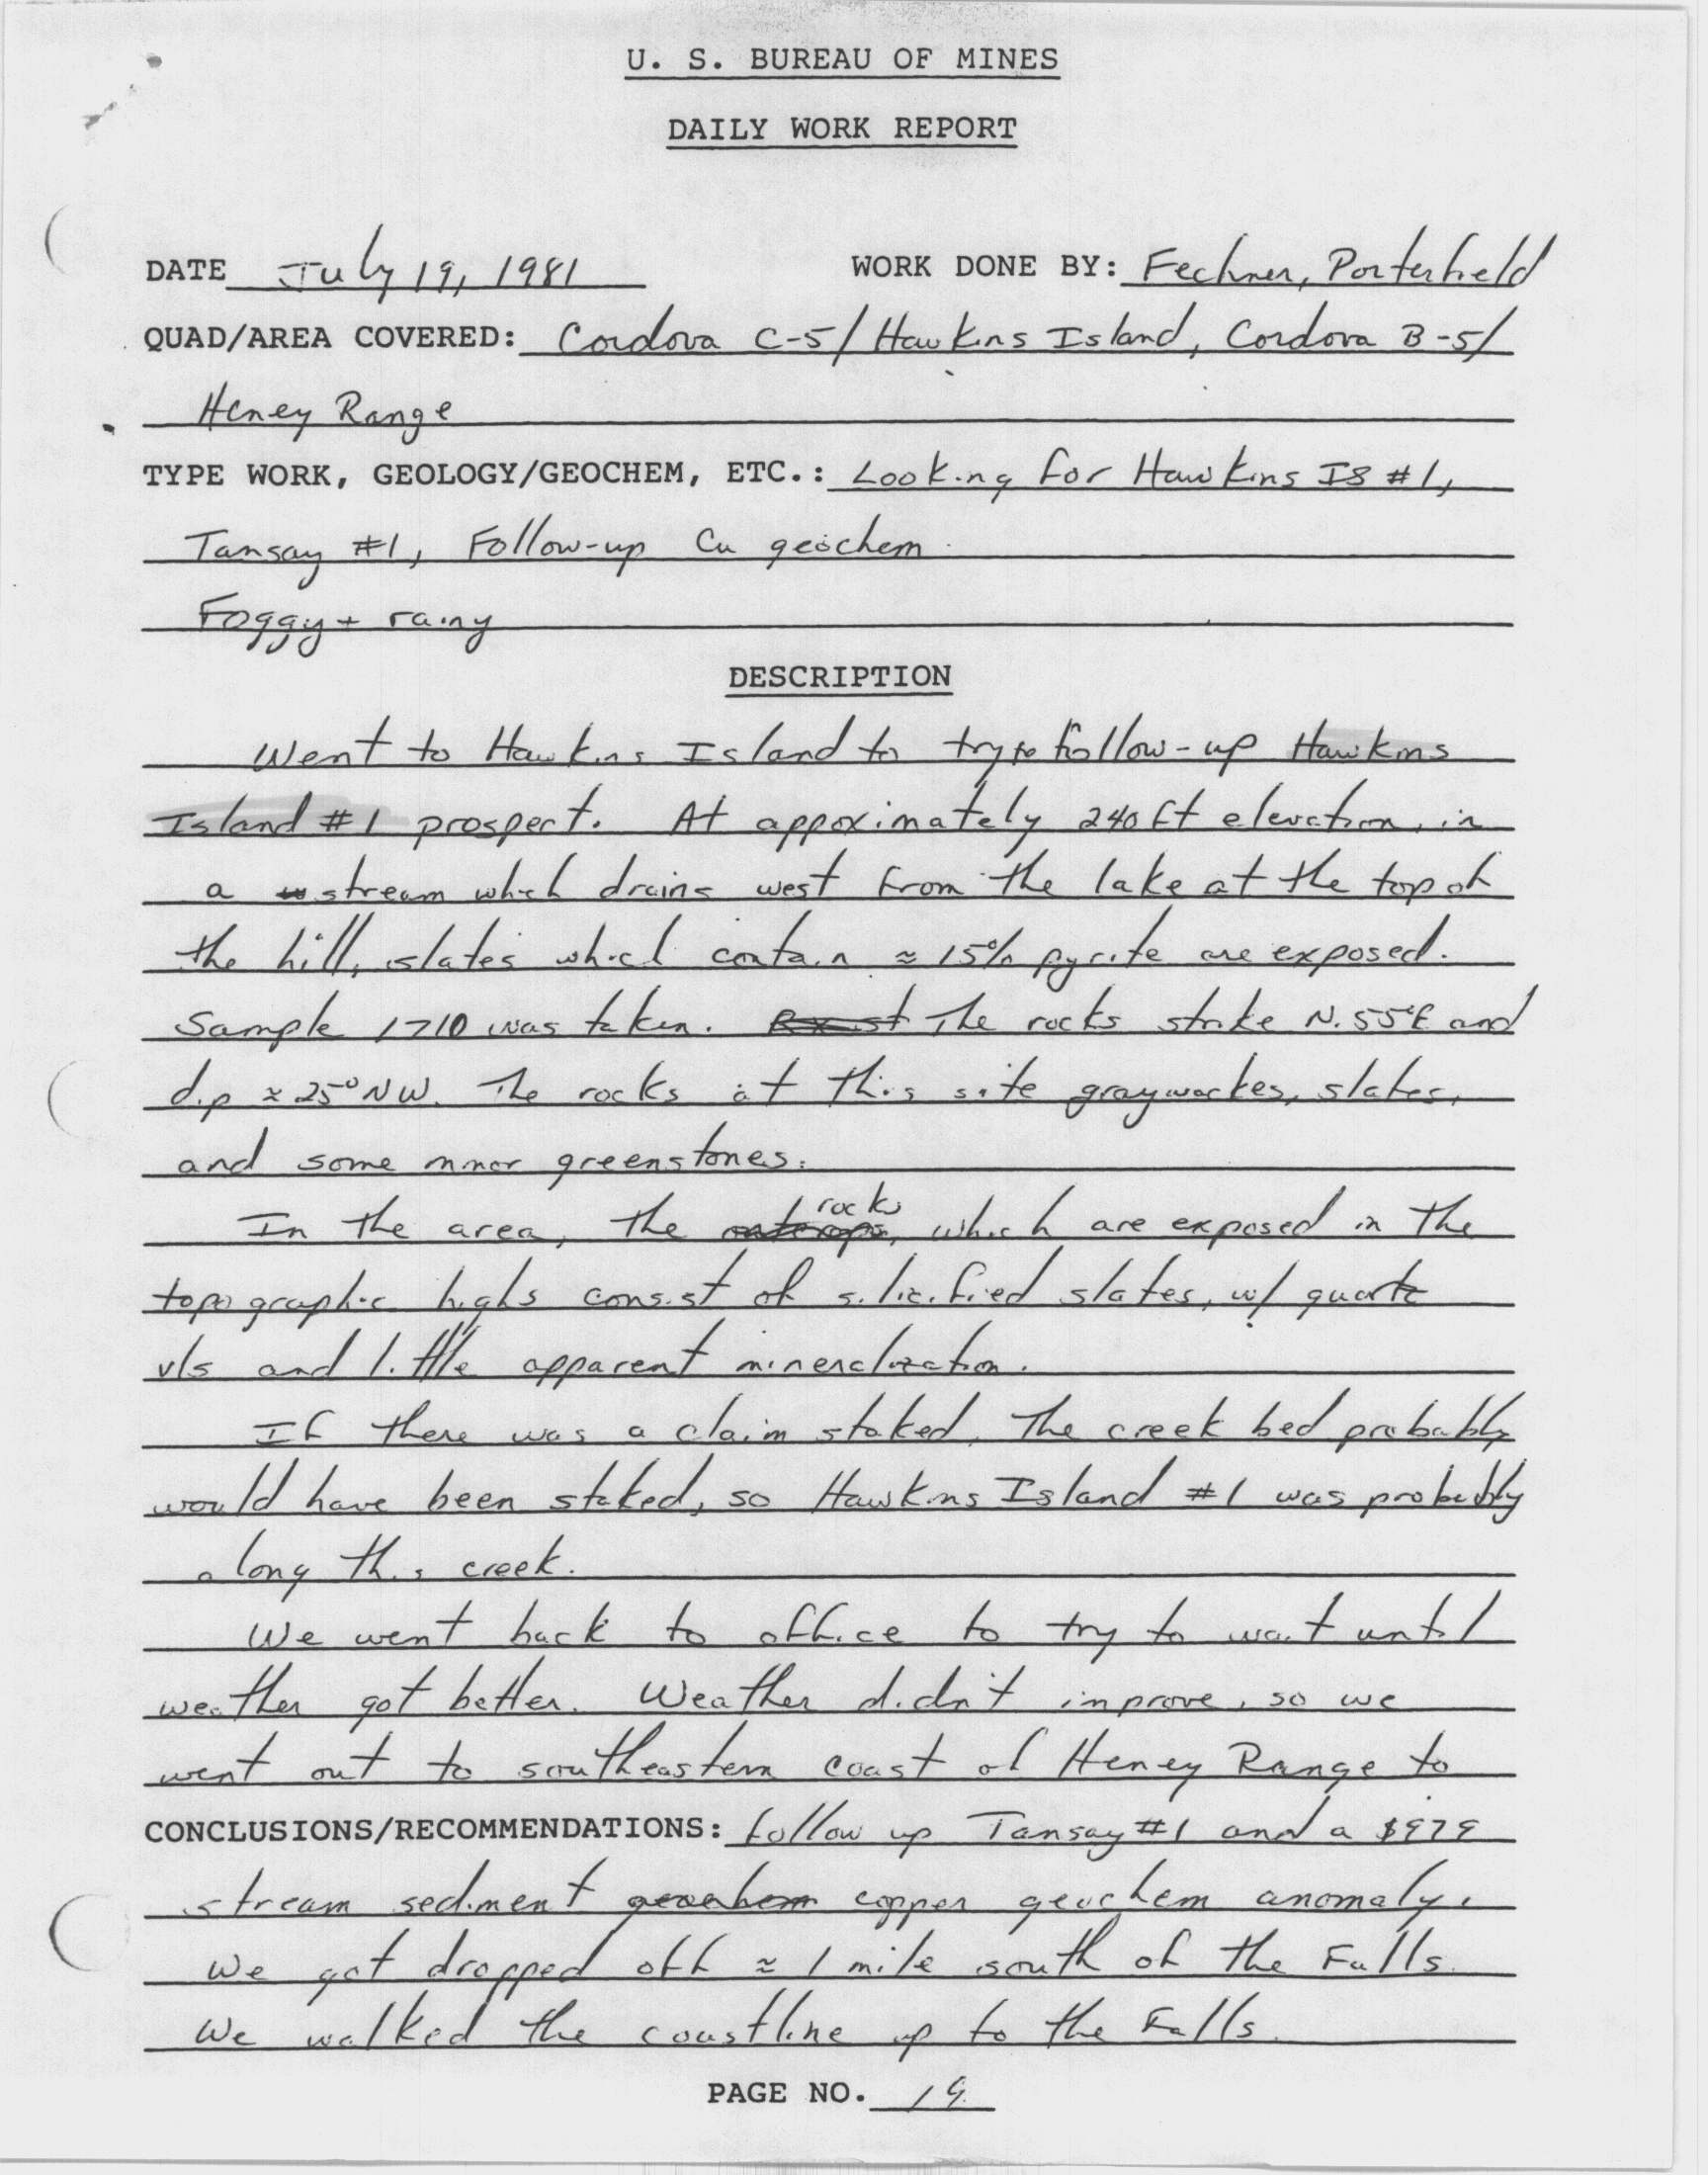 U. S. BUREAU OF MINES
DAILY WORK REPORT
DATE July 19, 1981 WORK DONE BY: Fechner, Porterfield
QUAD/AREA COVERED: Cordova C-5/Hawkins Island, Cordova B-5/
Heney Range
TYPE WORK, GEOLOGY/GEOCHEM, ETC.: Looking for Hawkins IS #1,
Tansay #1, Follow-up Cu geochem
Foggy + rainy
DESCRIPTION
Went to Hawkins Island to try to follow-up Hawkins
Island #1 prospect. At appoximately 240 ft elevation, in
a stream which drains west from the lake at the top of
the hill, slates which contain ≈ 15% pyrite are exposed.
Sample 1710 was taken. The rocks strike N. 55°E and
dip ≈ 25° NW. The rocks at this site graywackes, slates,
and some minor greenstones.
In the area, the rocks, which are exposed in the
topographic highs consist of silicified slates, w/ quartz
vls and little apparent mineralization.
If there was a claim staked, the creek bed probably
would have been staked, so Hawkins Island #1 was probably
along this creek.
We went back to office to try to wait until
weather got better. Weather didn't improve, so we
went out to southeastern coast of Heney Range to
CONCLUSIONS/RECOMMENDATIONS: follow up Tansay #1 and a
stream sediment copper geochem anomaly.
We got dropped off ≈ 1 mile south of the Falls.
We walked the coastline up to the Falls.
PAGE NO. 19